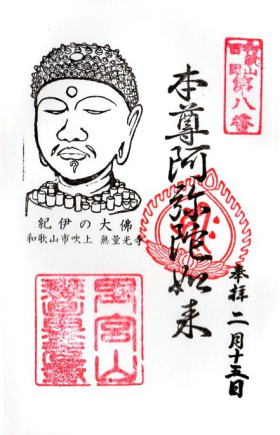 第八番
本尊阿弥陀如来
奉拝 二月十五日
紀伊の大佛
和歌山市吹上 無量光寺